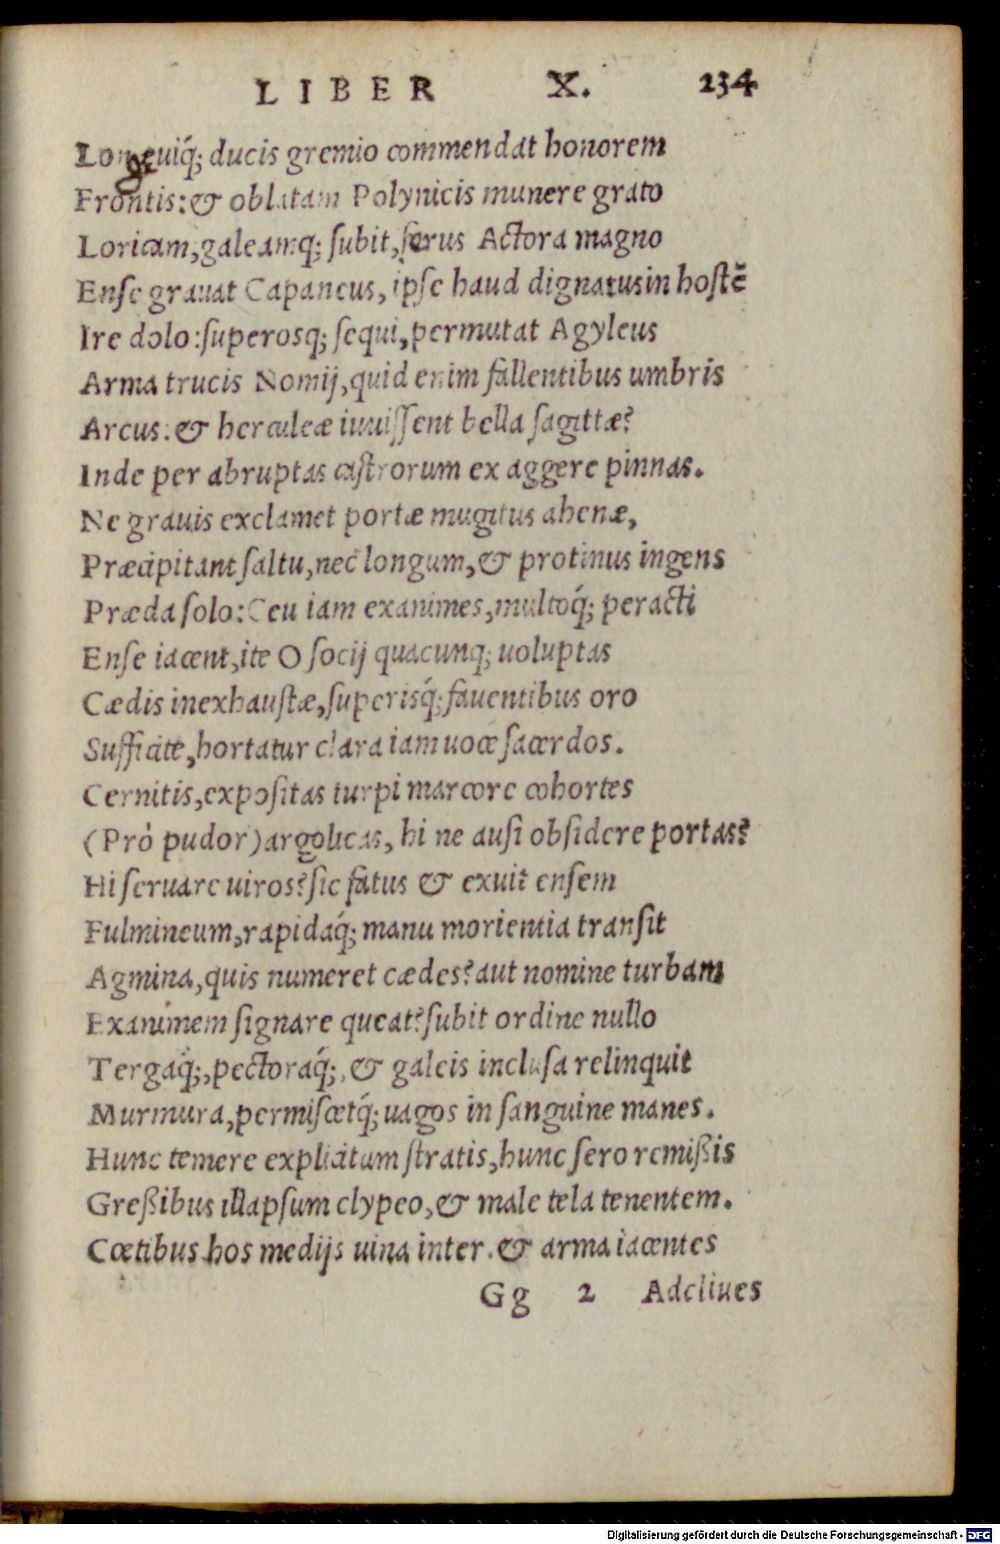 LIBER X. 234
Longæuiq́; ducis gremio commendat honorem
Frontis: & oblatam Polynicis munere grato
Loricam, galeamq; subit, ſerus Actora magno
Enſe grauat Capaneus, ipſe haud dignatus in hoſtẽ
Ire dolo: ſuperosq; ſequi, permutat Agyleus
Arma trucis Nomij, quid enim fallentibus umbris
Arcus: & herculeæ iuuiſſent bella ſagittæ?
Inde per abruptas caſtrorum ex aggere pinnas.
Ne grauis exclamet portæ mugitus ahenæ,
Præcipitant ſaltu, nec longum, & protinus ingens
Præda ſolo: Ceu iam exanimes, multoq́; peracti
Enſe iacent, ite O ſocij quacunq; uoluptas
Cædis inexhauſtæ, ſuperisq́; fauentibus oro
Sufficite, hortatur clara iam uoce ſacerdos.
Cernitis, expoſitas turpi marcore cohortes
(Prò pudor) argolicas, hi ne auſi obſidere portas?
Hi ſeruare uiros? ſic fatus & exuit enſem
Fulmineum, rapidaq́; manu morientia tranſit
Agmina, quis numeret cædes? aut nomine turbam
Exanimem ſignare queat? ſubit ordine nullo
Tergaq́;, pectoraq́;, & galeis incluſa relinquit
Murmura, permiſcetq́; uagos in ſanguine manes.
Hunc temere explicitum ſtratis, hunc ſero remißis
Greßibus illapſum clypeo, & male tela tenentem.
Cœtibus hos medijs uina inter. & arma iacentes
Gg 2 Adcliues
Digitalisierung gefördert durch die Deutsche Forschungsgemeinschaft - DFG